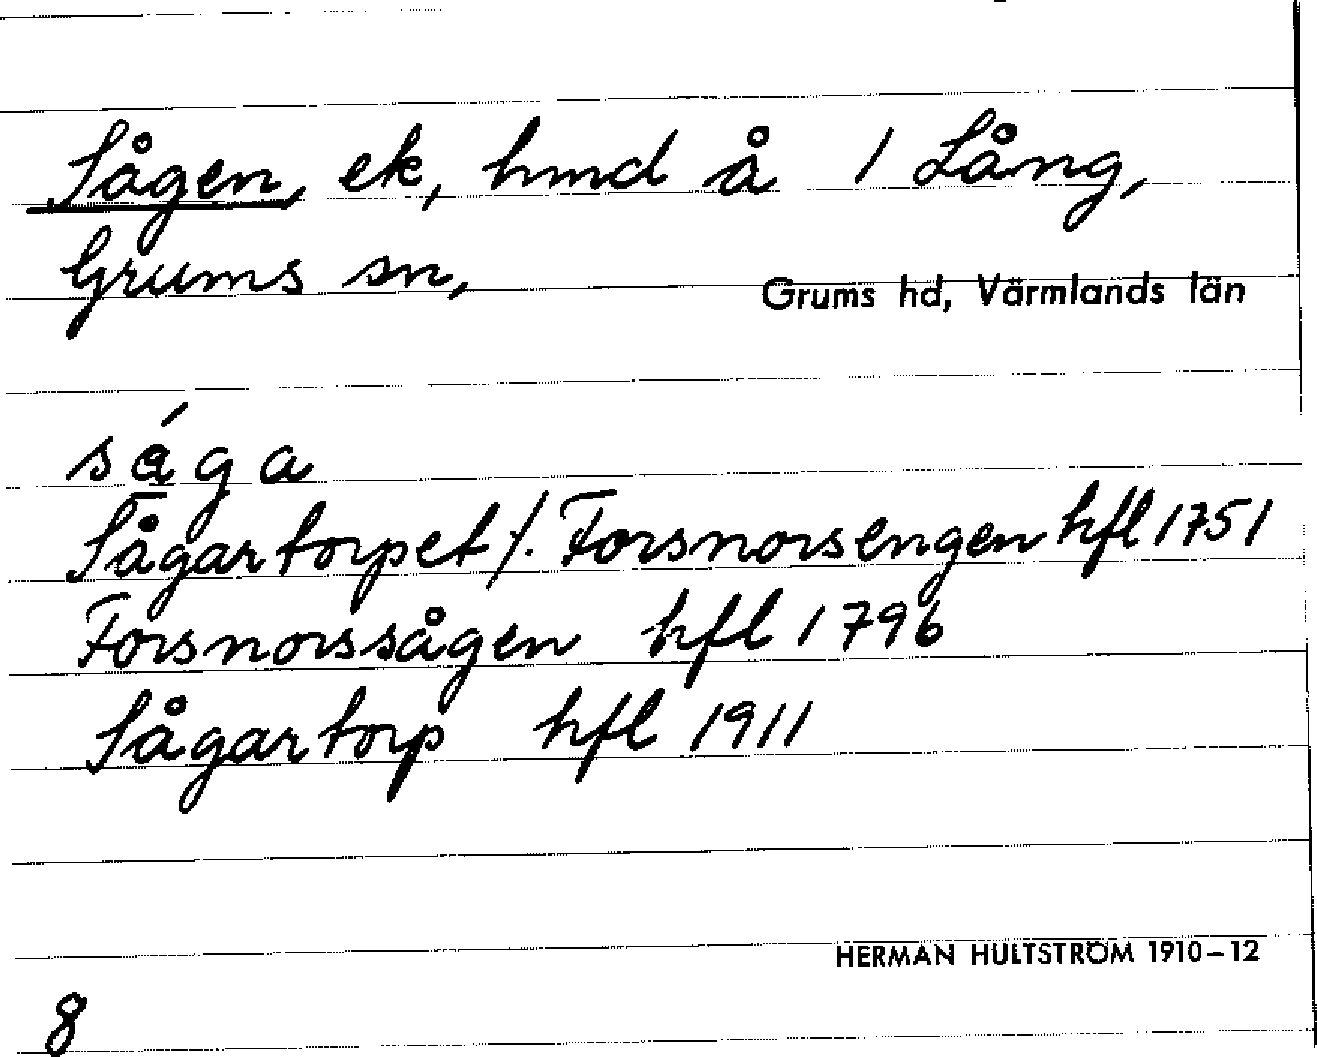 Sågen, ek, hmd å 1 Lång,
Grums sn, Grums hd, Värmlands län
ság a
Sågartorpet /. Forsnorsengen hfl 1751
Forsnorssågen hfl 1796
Sågartorp hfl 1911
HERMAN HULTSTRÖM 1910–12
8